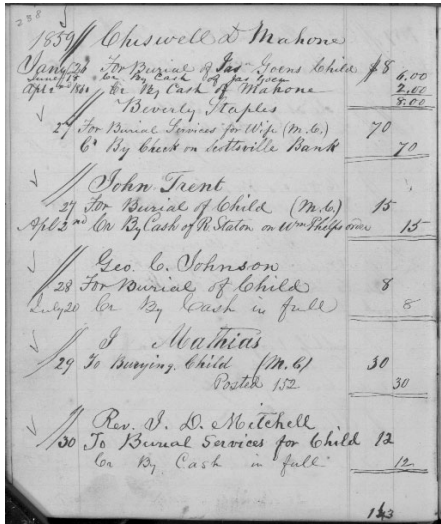 238
1859 Chiswell D Mahone
Jany 26 For Burial of Jas Goens Child $8
June 18 Cr By Cash of Jas Goen 6.00
Apl 2nd 1860 Cr By Cash of Mahone 2.00
8.00
Beverly Staples
27 For Burial Services for Wife (M.C.) 70
Cr By Check on Scottsville Bank 70
John Trent
27 For Burial of Child (M.C.) 15
Apl 2nd Cr By Cash of R. Staton on Wm Phelps order 15
Geo. C. Johnson
28 For Burial of Child 8
July 20 Cr By Cash in full 8
J Mathias
29 To Burying Child (M.C.) 30
Posted 152 30
Rev. J. D. Mitchell
30 To Burial Services for Child 12
Cr By Cash in full 12
143